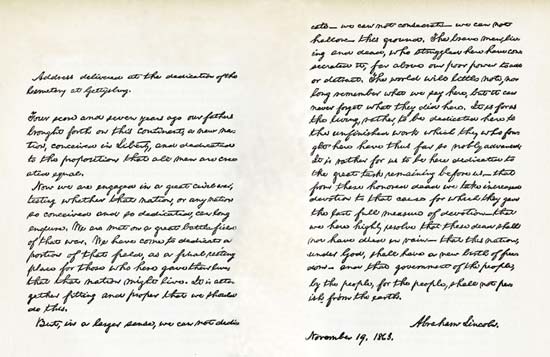 Address delivered at the dedication of the
Cemetery at Gettysburg.
Four score and seven years ago our fathers
brought forth on this continent, a new na-
tion, conceived in Liberty, and dedicated
to the proposition that all men are cre-
ated equal.
Now we are engaged in a great civil war,
testing whether that nation, or any nation
so conceived and so dedicated, can long
endure. We are met on a great battle-field
of that war. We have come to dedicate a
portion of that field, as a final resting
place for those who here gave their lives
that that nation might live. It is alto-
gether fitting and proper that we should
do this.
But, in a larger sense, we can not dedi-
cate—we can not consecrate—we can not
hallow—this ground. The brave men, liv-
ing and dead, who struggled here have con-
secrated it, far above our poor power to add
or detract. The world will little note, nor
long remember what we say here, but it can
never forget what they did here. It is for us
the living, rather, to be dedicated here to
the unfinished work which they who fou-
ght here have thus far so nobly advanced.
It is rather for us to be here dedicated to
the great task remaining before us—that
from these honored dead we take increased
devotion to that cause for which they gave
the last full measure of devotion—that
we here highly resolve that these dead shall
not have died in vain—that this nation,
under God, shall have a new birth of free-
dom—and that government of the people,
by the people, for the people, shall not per-
ish from the earth.
Abraham Lincoln.
November 19, 1863.